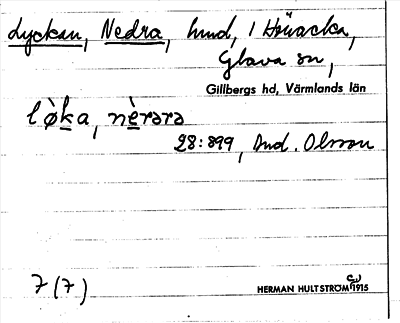 Lyckan, Nedra, hmd, i
Glava sn,
Gillbergs hd, Värmlands län
lø̀ka, nèrərə
28:899, And. Olsson
7(7)
HERMAN HULTSTRÖM 1915